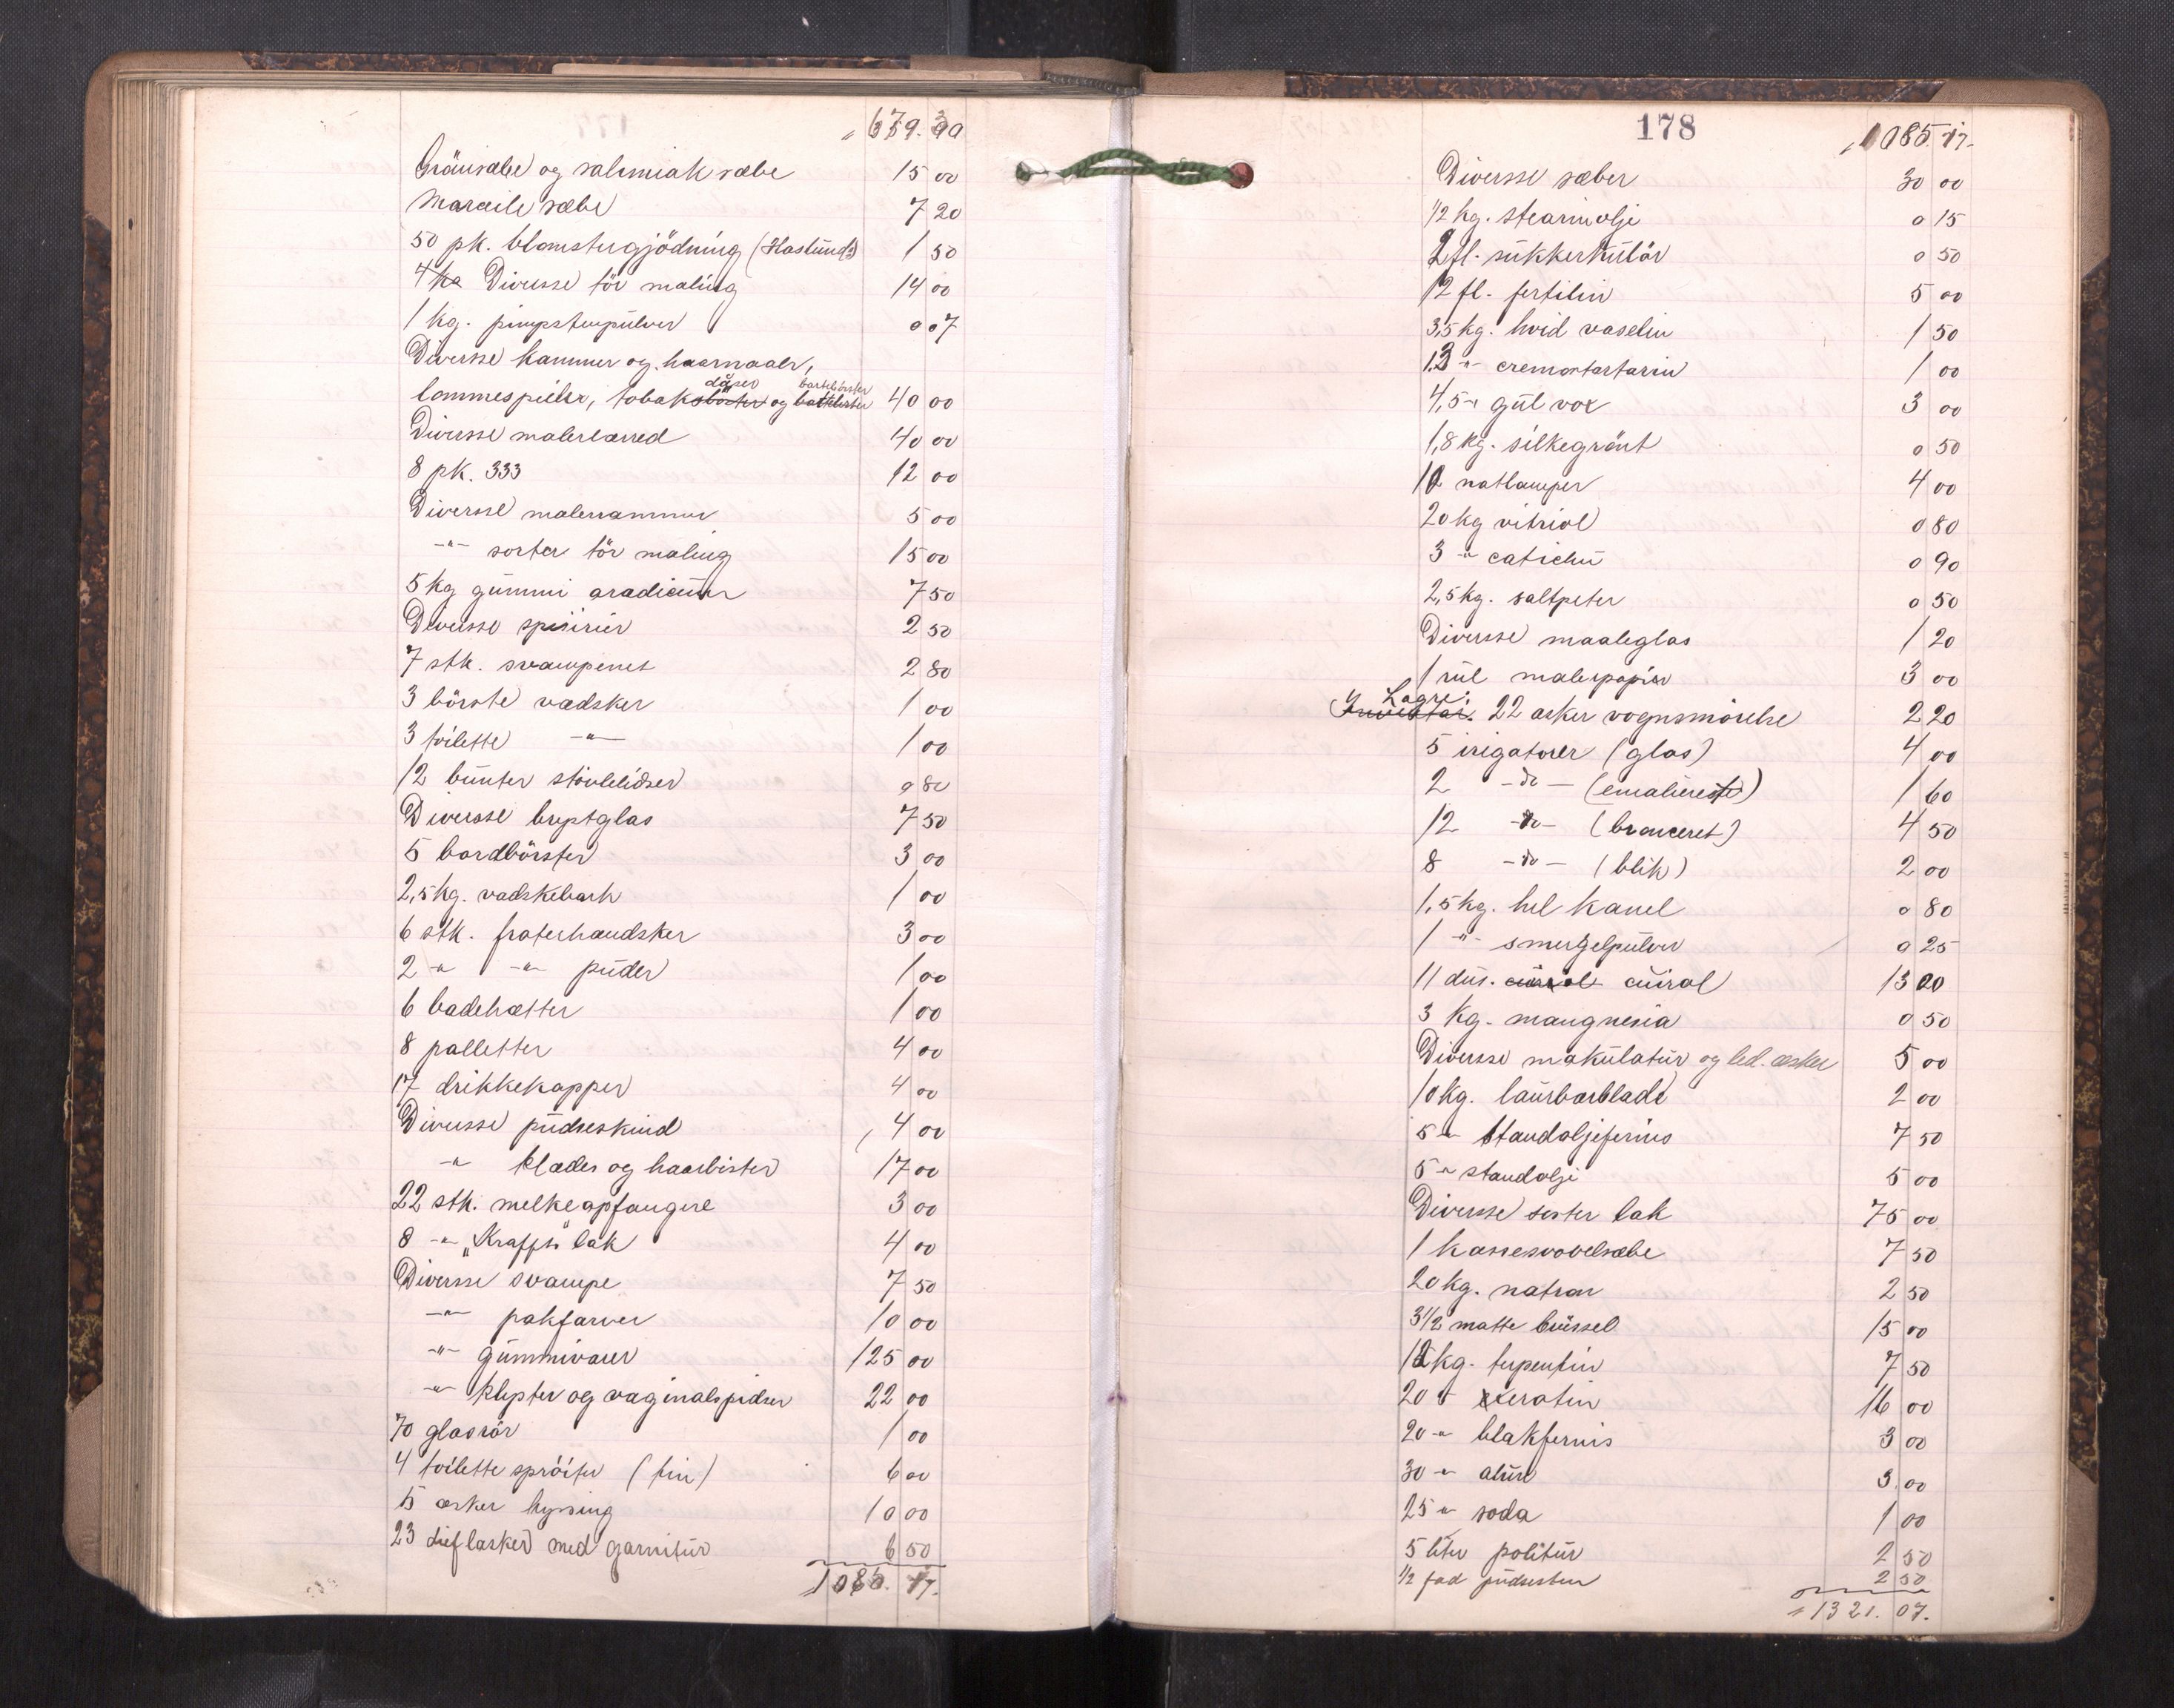 Grönsæbe og salmiak sæbe 15 00
Marseile sæbe 7 20
50 pk. blomstergjödning (Haslunds) 1 50
Diverse tör maling 14 00
1 kg. pimpstenpulver 0 07
Diverse kammer og haarnaaler,
daaser bartebörster
lommespeiler, tobaks og 40 00
Diverse malerlærred 40 00
8 pk. 333 12 00
Diverse malerrammer 5 00
-"- sorter tör maling 15 00
5 kg gummi 7 50
Diverse 2 50
7 stk. svampenet 2 80
3 börste vædsker 1 00
3 toilette -"- 1 00
12 bunter stövlelidser 0 80
Diverse brystglas 7 50
5 bordbörster 3 00
2,5 kg. vadskebark 1 00
6 stk. froterhandsker 3 00
2 -"- -"- puder 1 00
6 badehætter 1 00
8 palletter 4 00
17 drikkekopper 4 00
Diverse pudseskind 4 00
-"- klæder og haarbörster 17 00
22 stk. melkeopfangere 3 00
8 -"- "Krafft" lak 4 00
Diverse svampe 7 50
-"- pakfarver 10 00
-"- gummivarer 125 00
-"- klyster og vaginalspidser 22 00
70 glasrör 1 00
4 toilette spröiter (tin) 6 00
5 æsker hyssing 10 00
23 dieflasker med garnitur 6 50
1085. 17.
178
1085. 17.
Diverse sæber 30 00
1/2 kg. stearinolje 0 15
2 fl. sukkerkulör 0 50
12 fl. fertilin 5 00
3,5 kg. hvid vaselin 1 50
1,3 -"- cremortartarin 1 00
4,5 -"- gul vox 3 00
1,8 kg. silkegrönt 0 50
10 natlamper 4 00
20 kg vitriol 0 80
3 -"- catichu 0 90
2,5 kg. saltpeter 0 50
Diverse maaleglas 1 20
1 rul malerpapir 3 00
Lagre:
Inventar. 22 æsker vognsmörelse 2 20
5 irigatorer (glas) 4 00
2 -do- (emalierte) 1 60
12 -do- (bronceret) 4 50
8 -do- (blik) 2 00
1,5 kg. hel kanel 0 80
1 -"- smergelpulver 0 25
11 dus. cuirol 13 20
3 kg. mangnesia 0 50
Diverse makulatur og led. æsker 5 00
10 kg. laurbærblade 2 00
5 -"- standoljefernis 7 50
5 -"- standolje 5 00
Diverse sorter lak 75 00
1 kassesvovelsæbe 7 50
20 kg. natron 2 50
3 1/2 matte brüssel 15 00
12 kg. terpentin 7 50
20 -"- xeratin 16 00
20 -"- blakfernis 3 00
30 -"- alun 3 00
25 -"- soda 1 00
5 liter politur 2 50
1/2 fad pudsesten 2 50
1321. 07.